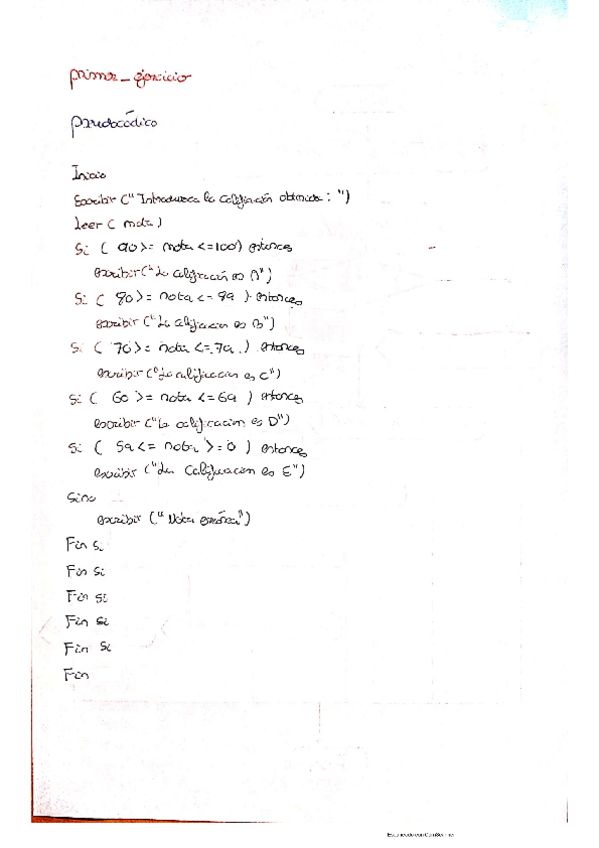 primer_ejercicio
Pseudocódico
Inicio
Escribir (" Introduzca la calificación obtenida : ")
Leer ( nota )
Si ( 90 >= nota <=100) entonces
escribir ("La calificación es A")
Si ( 80 >= nota <= 89 ) entonces
escribir ("La calificacion es B")
Si ( 70 >= nota <= 79 ) entonces
escribir ("La calificacion es C")
Si ( 60 >= nota <=69 ) entonces
escribir ("La calificacion es D")
Si ( 59 <= nota >=0 ) entonces
escribir ("La Calificacion es E")
Sino
escribir (" Nota errónea")
Fin si
Fin si
Fin si
Fin si
Fin si
Fin
Escaneado con CamScanner